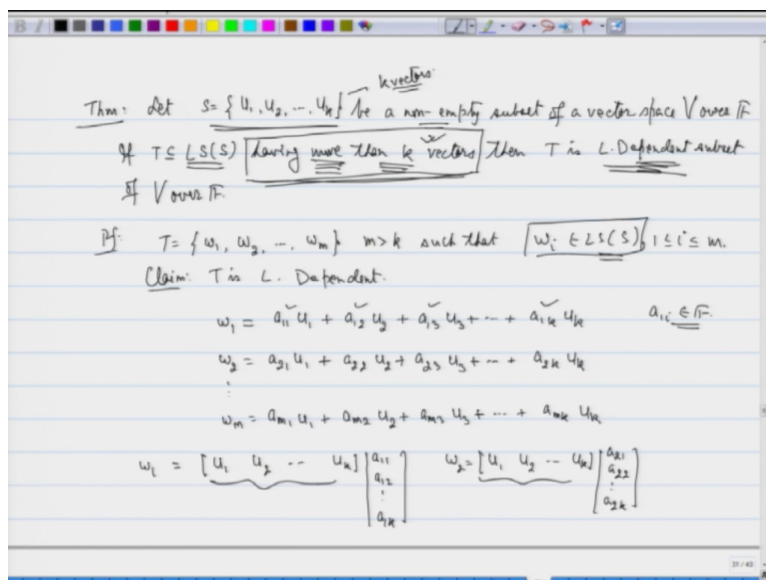 k vectors
Thm: Let S = { u₁, u₂, ..., uₖ } be a non-empty subset of a vector space V over F
If T ⊆ LS(S) having more than k vectors then T is L. Dependent subset
of V over F.
Pf: T = { w₁, w₂, ..., wₘ } m > k such that wᵢ ∈ LS(S), 1 ≤ i ≤ m.
Claim: T is L. Dependent.
w₁ = a₁₁ u₁ + a₁₂ u₂ + a₁₃ u₃ + ... + a₁ₖ uₖ a₁ᵢ ∈ F.
w₂ = a₂₁ u₁ + a₂₂ u₂ + a₂₃ u₃ + ... + a₂ₖ uₖ
⋮
wₘ = aₘ₁ u₁ + aₘ₂ u₂ + aₘ₃ u₃ + ... + aₘₖ uₖ
w₁ = [ u₁ u₂ ... uₖ ] [ a₁₁ a₁₂ ⋮ a₁ₖ ] w₂ = [ u₁ u₂ ... uₖ ] [ a₂₁ a₂₂ ⋮ a₂ₖ ]
31 / 43